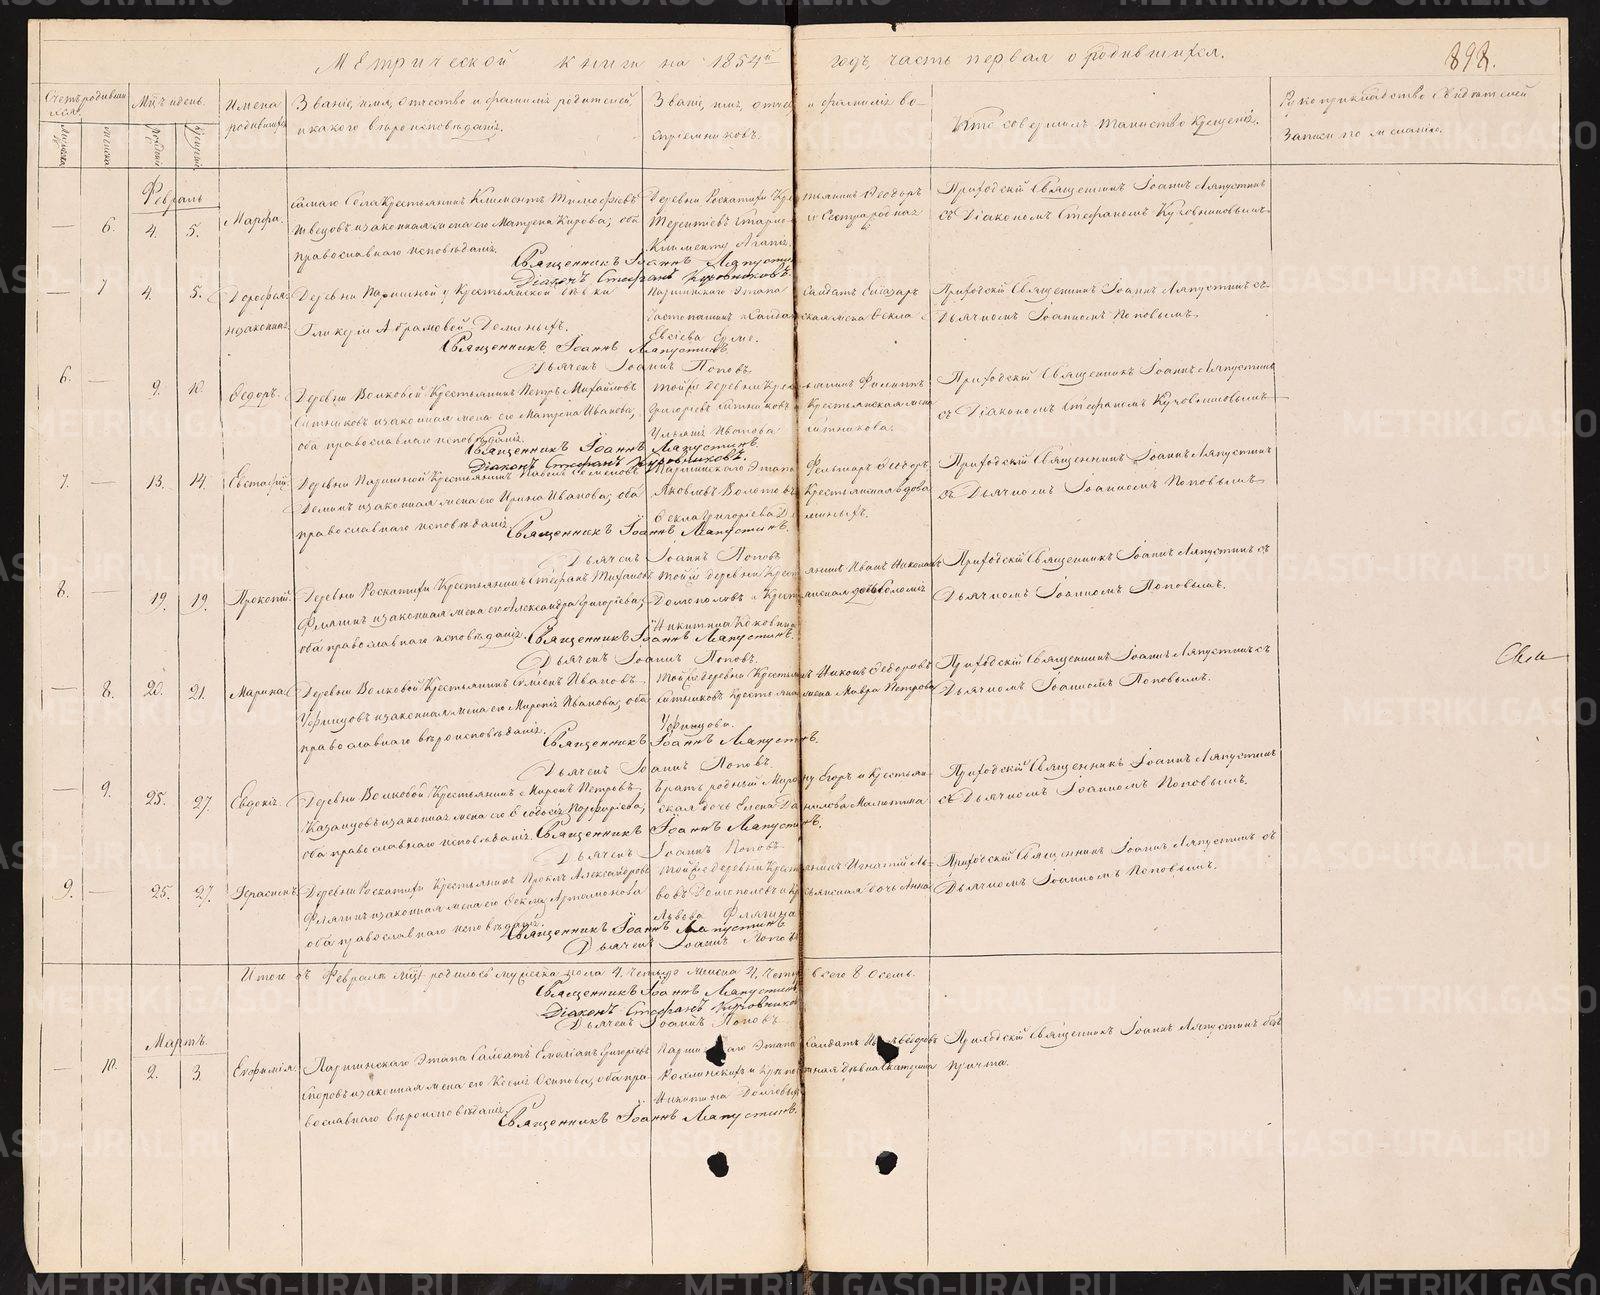 Метрической книги на 1854й годъ, часть первая о родившихся.
898.
Счетъ родивших
ся.
Мцъ и день.
Имена
родившихся
Званіе, имя, отчество и фамилія родителей,
и какого вѣроисповѣданія.
Званіе, имя, отче и фамилія во-
спріемниковъ.
Кто совершилъ таинство крещенія.
Рукоприкладство свидѣтелей
записи по желанію.
мужеска
женска
рожденія
крещенія
Февраль
— 6. 4. 5. Марфа.
самаго Села Крестьянинъ Климентъ Тимофѣевъ
Швецовъ и законная жена его Матрена Кирова; оба
православнаго исповѣданія.
Деревни Роскатихи Крестьянинъ Феодоръ
Терентіевъ и Сестра родная
Клименту Агапія.
Приходскій Священникъ Іоаннъ Ляпустинъ
съ Діакономъ Стефаномъ Кузовниковымъ.
Священникъ Іоаннъ Ляпустинъ
Діаконъ Стефанъ Кузовниковъ.
— 7 4. 5. Дорофея
незаконная
Деревни Паришной у Крестьянской дѣвки
Гликеріи Абрамовой Деминыхъ.
Этапа Салдатъ Елизаръ
жена Фекла
Евсіева
Приходскій Священникъ Іоаннъ Ляпустинъ съ
Дьячкомъ Іоанномъ Поповымъ.
Священникъ Іоаннъ Ляпустинъ
Дьячекъ Іоаннъ Поповъ.
6. — 9. 10. Ѳедоръ.
Деревни Волковой Крестьянинъ Петръ Михайловъ
Ситниковъ и законная жена его Матрена Иванова,
оба православнаго исповѣданія.
той же деревни Крестьянинъ Филиппъ
Григорьевъ Ситниковъ и Крестьянская жена
Ульянія Иванова Ситникова.
Приходскій Священникъ Іоаннъ Ляпустинъ
съ Діакономъ Стефаномъ Кузовниковымъ
Священникъ Іоаннъ Ляпустинъ
Діаконъ Стефанъ Кузовниковъ.
7. — 13. 14. Евстафій.
Деревни Паришной Крестьянинъ Павелъ Семеновъ
Деминъ и законная жена его Ирина Иванова; оба
православнаго исповѣданія.
Этапа Феодоръ
Яковлевъ Болотовъ Крестьянская вдова
Фекла Григорьева Деминыхъ.
Приходскій Священникъ Іоаннъ Ляпустинъ
съ Дьячкомъ Іоанномъ Поповымъ.
Священникъ Іоаннъ Ляпустинъ.
Дьячекъ Іоаннъ Поповъ
8. — 19. 19. Прокопій.
Деревни Роскатихи Крестьянинъ Стефанъ Михайловъ
Флягинъ и законная жена его Александра Григорьева;
оба православнаго исповѣданія.
той же деревни Крестьянинъ Иванъ Николаевъ
Долгополовъ и Крестьянская дочь Соломія
Никитина
Приходскій Священникъ Іоаннъ Ляпустинъ съ
Дьячкомъ Іоанномъ Поповымъ.
Священникъ Іоаннъ Ляпустинъ.
Дьячекъ Іоаннъ Поповъ.
— 8. 20. 21. Марина.
Деревни Волковой Крестьянинъ Семенъ Ивановъ
Уфинцовъ и законная жена его Марія Иванова; оба
православнаго вѣроисповѣданія.
той же деревни Крестьянинъ Никонъ Ѳедоровъ
Ситниковъ Крестьянская жена Мавра Петрова
Уфинцова.
Приходскій Священникъ Іоаннъ Ляпустинъ съ
Дьячкомъ Іоанномъ Поповымъ.
Священникъ Іоаннъ Ляпустинъ.
Дьячекъ Іоаннъ Поповъ.
— 9. 25. 27. Евдокія.
Деревни Волковой Крестьянинъ Миронъ Петровъ
Казанцовъ и законная жена его Феодосія Порфирьева;
оба православнаго исповѣданія.
Братъ родный Мирону Егоръ и Крестьян-
ская дочь Елена Данилова Малютина
Приходскій Священникъ Іоаннъ Ляпустинъ
съ Дьячкомъ Іоанномъ Поповымъ.
Священникъ Іоаннъ Ляпустинъ.
Дьячекъ Іоаннъ Поповъ
9. — 25. 27. Герасимъ.
Деревни Роскатихи Крестьянинъ Проклъ Александровъ
Флягинъ и законная жена его Фекла Артамонова
оба православнаго исповѣданія.
той же деревни Крестьянинъ Игнатій Ль-
вовъ Долгополовъ и Крестьянская дочь Анна
Львова Флягина
Приходскій Священникъ Іоаннъ Ляпустинъ съ
Дьячкомъ Іоанномъ Поповымъ.
Священникъ Іоаннъ Ляпустинъ
Дьячекъ Іоаннъ Поповъ
Итого въ Февралѣ мцѣ родилось мужеска пола 4. четыре женска 4. четыре всего 8 осемь.
Священникъ Іоаннъ Ляпустинъ
Діаконъ Стефанъ Кузовниковъ
Дьячекъ Іоаннъ Поповъ
Мартъ.
— 10. 2. 3. Евфимія.
Этапа Салдатъ Емеліанъ Григорьевъ
и законная жена его Ксенія Осипова, оба пра-
вославнаго вѣроисповѣданія.
Этапа Салдатъ
дѣвка Екатерина
Никитина
Приходскій Священникъ Іоаннъ Ляпустинъ безъ
причта.
Священникъ Іоаннъ Ляпустинъ.
METRIKI.GASO-URAL.RU